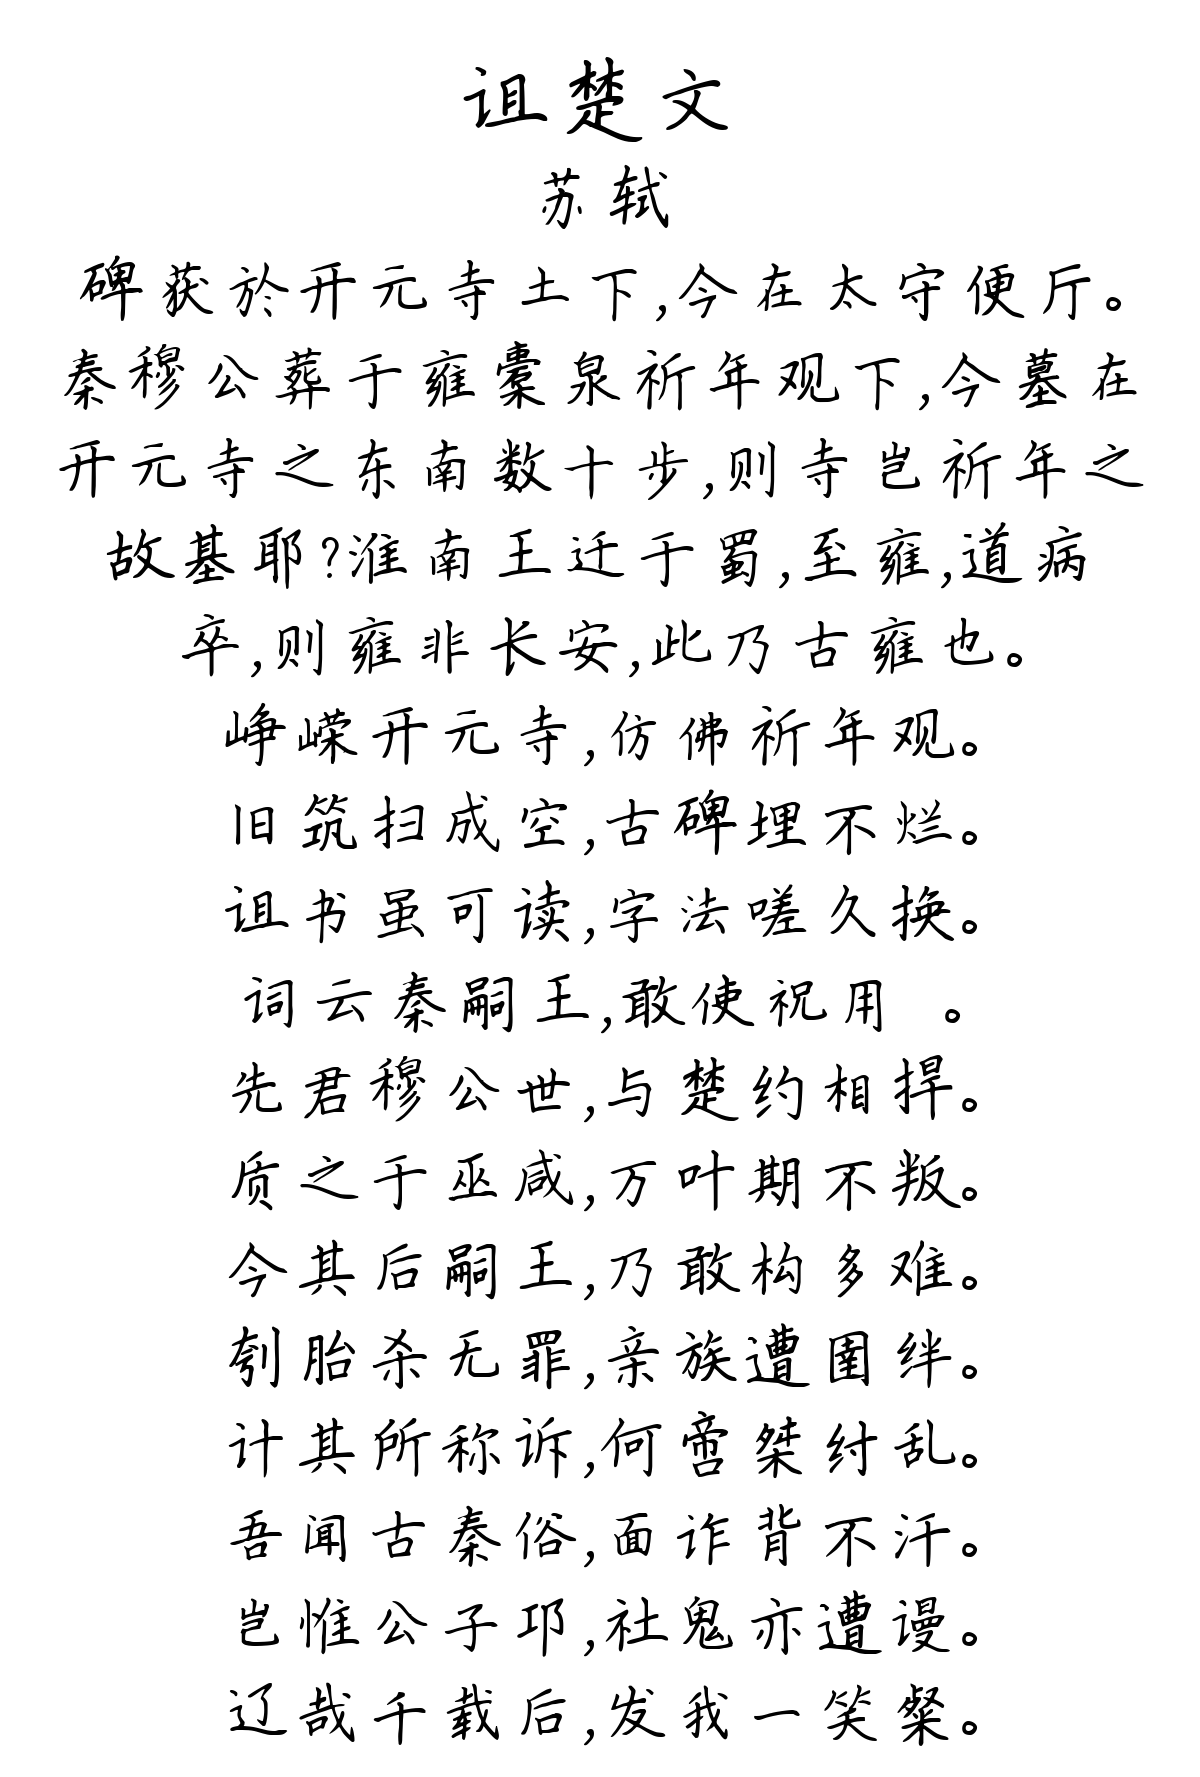 诅楚文
苏轼
碑获於开元寺土下,今在太守便厅。
秦穆公葬于雍橐泉祈年观下,今墓在
开元寺之东南数十步,则寺岂祈年之
故基耶?淮南王迁于蜀,至雍,道病
卒,则雍非长安,此乃古雍也。
峥嵘开元寺,仿佛祈年观。
旧筑扫成空,古碑埋不烂。
诅书虽可读,字法嗟久换。
词云秦嗣王,敢使祝用 。
先君穆公世,与楚约相捍。
质之于巫咸,万叶期不叛。
今其后嗣王,乃敢构多难。
刳胎杀无罪,亲族遭圉绊。
计其所称诉,何啻桀纣乱。
吾闻古秦俗,面诈背不汗。
岂惟公子邛,社鬼亦遭谩。
辽哉千载后,发我一笑粲。